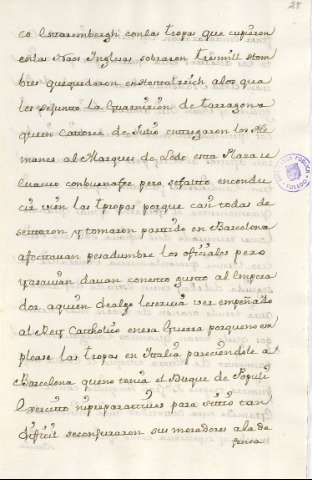 28
co Lstaremberghi con las tropas que cupieron
en las Naos Inglesas sobraron tres mill Hom
bres que quedaron en Hostalrich a los que a
les se junto la Guarnicion de Tarragona
quien Catorce de Julio entregaron los Ale
manes al Marques de Lede esta Plaza se
evacuo con buena fee pero se faltò en condu
cir vien las tropas porque casi todas de
sertaron y tomaron partido en Barcelona
afectauan pesadumbre los oficiales pero
dauan en esto gusto al Empera
dor a quien de algo le seruia ver empeñado
al Rey Catholico en esa Guerra porque no em
please las tropas en Italia pareciendole a
Barcelona que no tenia el Duque de Populi
Exercito ni preparativos para sitio tan
dificil se conjuraron sus moradores a la de
fensa